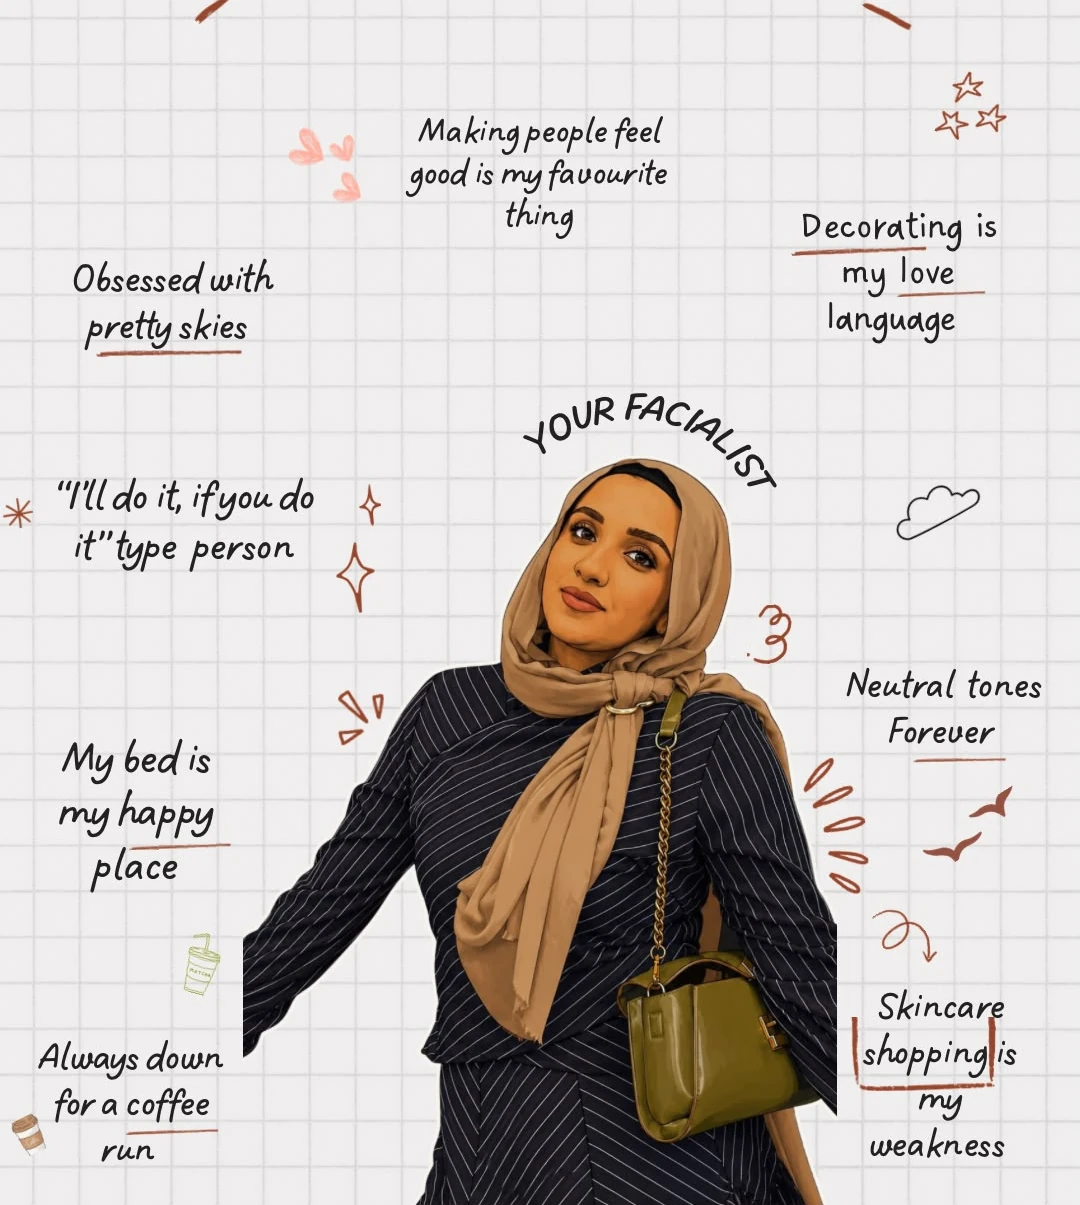 Making people feel
good is my favourite
thing
Decorating is
my love
language
Obsessed with
pretty skies
YOUR FACIALIST
"I'll do it, if you do
it" type person
Neutral tones
Forever
My bed is
my happy
place
MATCHA
Skincare
shopping is
my
weakness
Always down
for a coffee
run